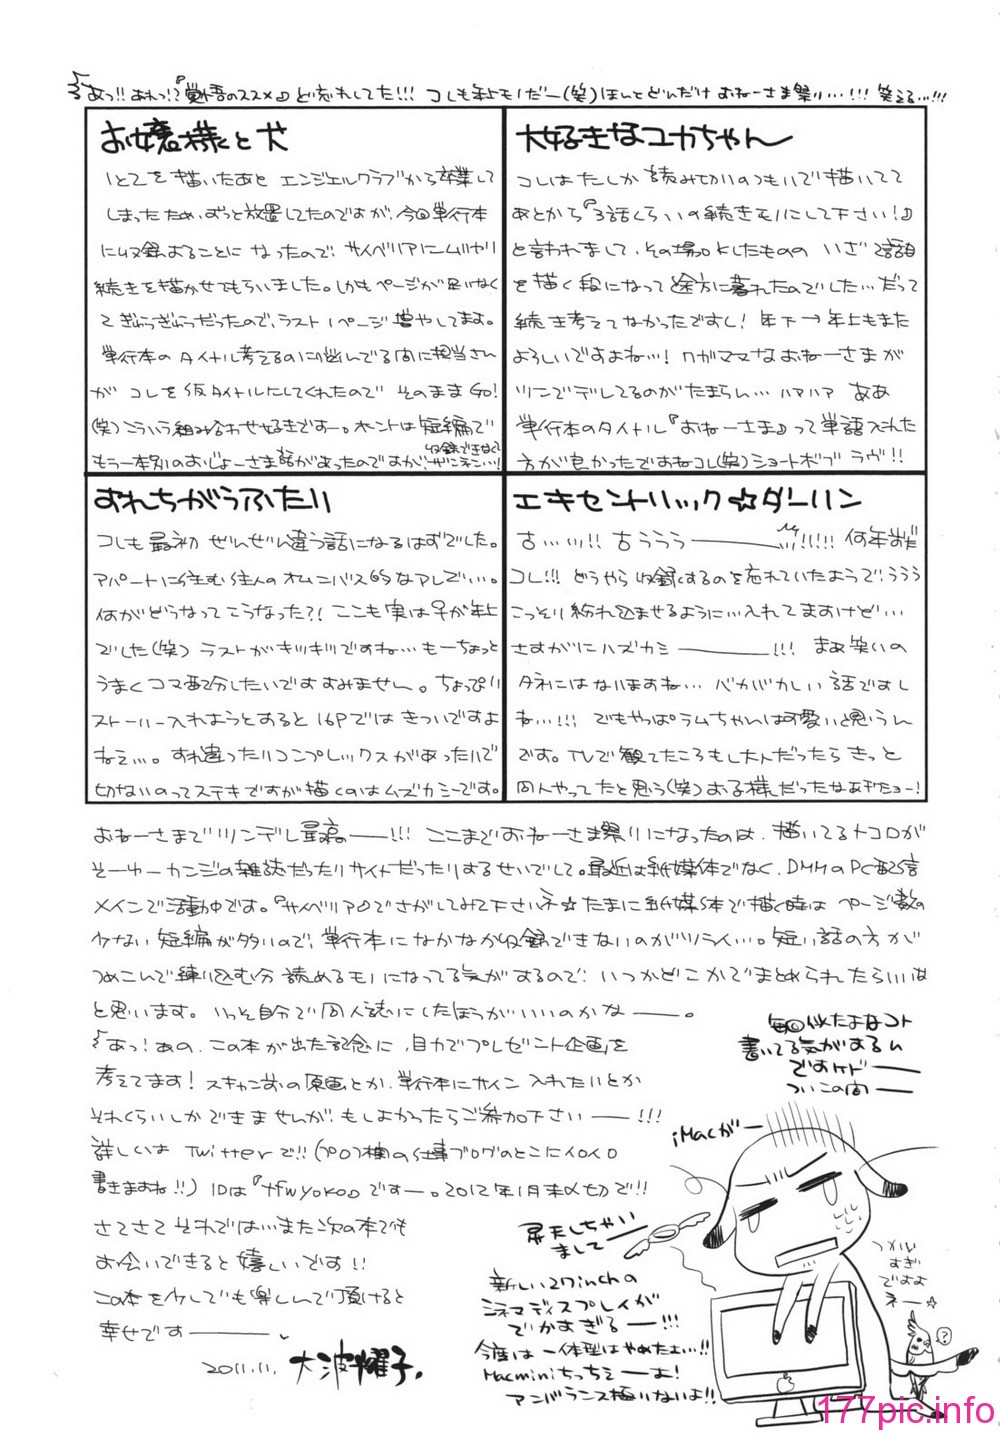 あっ!!あれっ!?『覚悟のススメ』ど忘れしてた!!! コレも年上モノだー(笑)ほんとどんだけ おねーさま祭り…!!! 笑える…!!!
お嬢様と犬
1と2を描いたあと エンジェルクラブから卒業して
しまったため、ずっと放置してたのですが、今回単行本
に収録することに なったので、サイベリアにムリヤリ
続きを描かせてもらいました。しかもページが足りなく
てぎゅうぎゅうだったので、ラスト1ページ増やしてます。
単行本のタイトル考えるのに悩んでる間に担当さん
が コレを仮タイトルにしてくれたので そのままGO!
(笑)こういう組み合わせ好きですー。ホントは短編で
もう一本別のおじょーさま話があったのですが、収録できなくてザンネン…!
大好きなユカちゃん
コレはたしか 読み切りのつもりで描いてて
あとから『3話くらいの続きモノにして下さい!』
と言われまして、その場はOKしたものの いざ2話目
を描く段になって途方に暮れたのでした…だって
続き考えてなかったですし!年下→年上もまた
よろしいですよね…!ワガママなおねーさまが
ツンでデレてるのがたまらん…ハアハア ああ
単行本のタイトル『おねーさま』って単語入れた
方が良かったですねコレ(笑)ショートボブ ラヴ!!
すれちがうふたり
コレも最初 ぜんぜん違う話になるはずでした。
アパートに住む住人のオムニバス的なアレで…。
何がどうなってこうなった?!ここも実は♀が年上
でした(笑) ラストがキツキツですね…もーちょっと
うまくコマ配分したいですすみません。ちょっぴり
ストーリー入れようとすると16Pではきついですよ
ねぇ…。すれ違ったりコンプレックスがあったりで
切ないのってステキですが描くのはムズカシーです。
エキセントリック☆ダーリン
古…ッ!!古ううう――!!!!! 何年前だ
コレ!!!どうやら収録するのを忘れていたようで、ううう
こっそり紛れ込ませるように…入れてますけど…
さすがにハズカシ――!!! まあ笑いの
タネにはなりますね…バカバカしい話ですし
ね…!!!でもやっぱラムちゃんは可愛いと思うん
です。TVで観てたころもし大人だったらきっと
同人やってたと思う(笑)
おねーさまでツンデレ最高――!!! ここまでおねーさま祭りになったのは、描いてるトコロが
そーゆーカンジの雑誌だったりサイトだったりするせいでして。最近は紙媒体でなく、DMMのPC配信
メインで活動中です。『サイベリア』でさがしてみて下さいネ☆たまに紙媒体で描く時は ページ数の
少ない短編が多いので、単行本になかなか収録できないのがツライ…。短い話の方が
つめこんで練り込む分 読めるモノになってる気がするので、いつかどこかでまとめられたらいいな
と思います。いっそ自分で同人誌にしたほうがいいのかな――。
あっ!あの、この本が出た記念に、自力でプレゼント企画を
考えてます!スキャン前の原画とか、単行本にサイン入れたいとか
それくらいしかできませんが、もしよかったらご参加下さい――!!!
詳しいは Twitterで!!(プロフ欄の仕事ブログのとこにイロイロ
書きますね!!) IDは『tfwyoko』ですー。2012年1月末〆切で!!
さてさて それでは…また次の本でも
お会いできると嬉しいです!!
この本を少しでも楽しんで頂けると
幸せです――
2011.11. 大波耀子。
毎回似たよなコト
書いてる気がするん
ですケド――
ついこの間――
iMacがー
昇天しちゃい
まして――
新しい27inchの
シネマディスプレイが
でかすぎるー!!!
今度は一体型はやめたよ…!!
Macminiちっちぇーよ!
アンバランス極いないよ!!
つかい
すぎ
ですよ
ネー☆
?
177pic.info